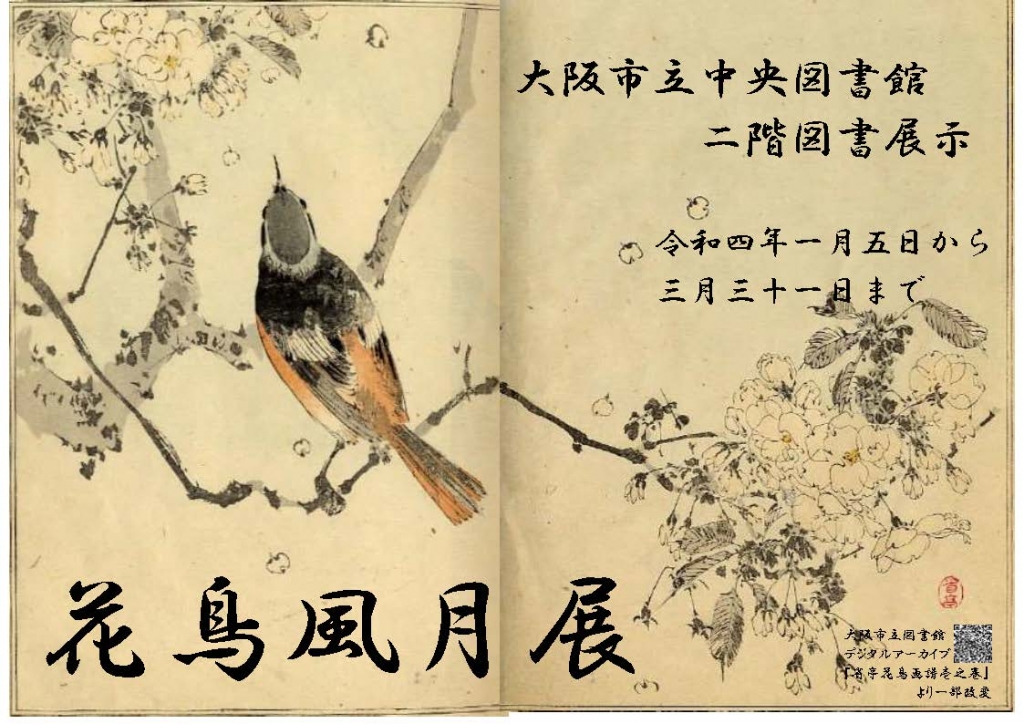 大阪市立中央図書館
二階図書展示
令和四年一月五日から
三月三十一日まで
花鳥風月展
省亭
大阪市立図書館
デジタルアーカイブ
『省亭花鳥画譜壱之巻』
より一部改変